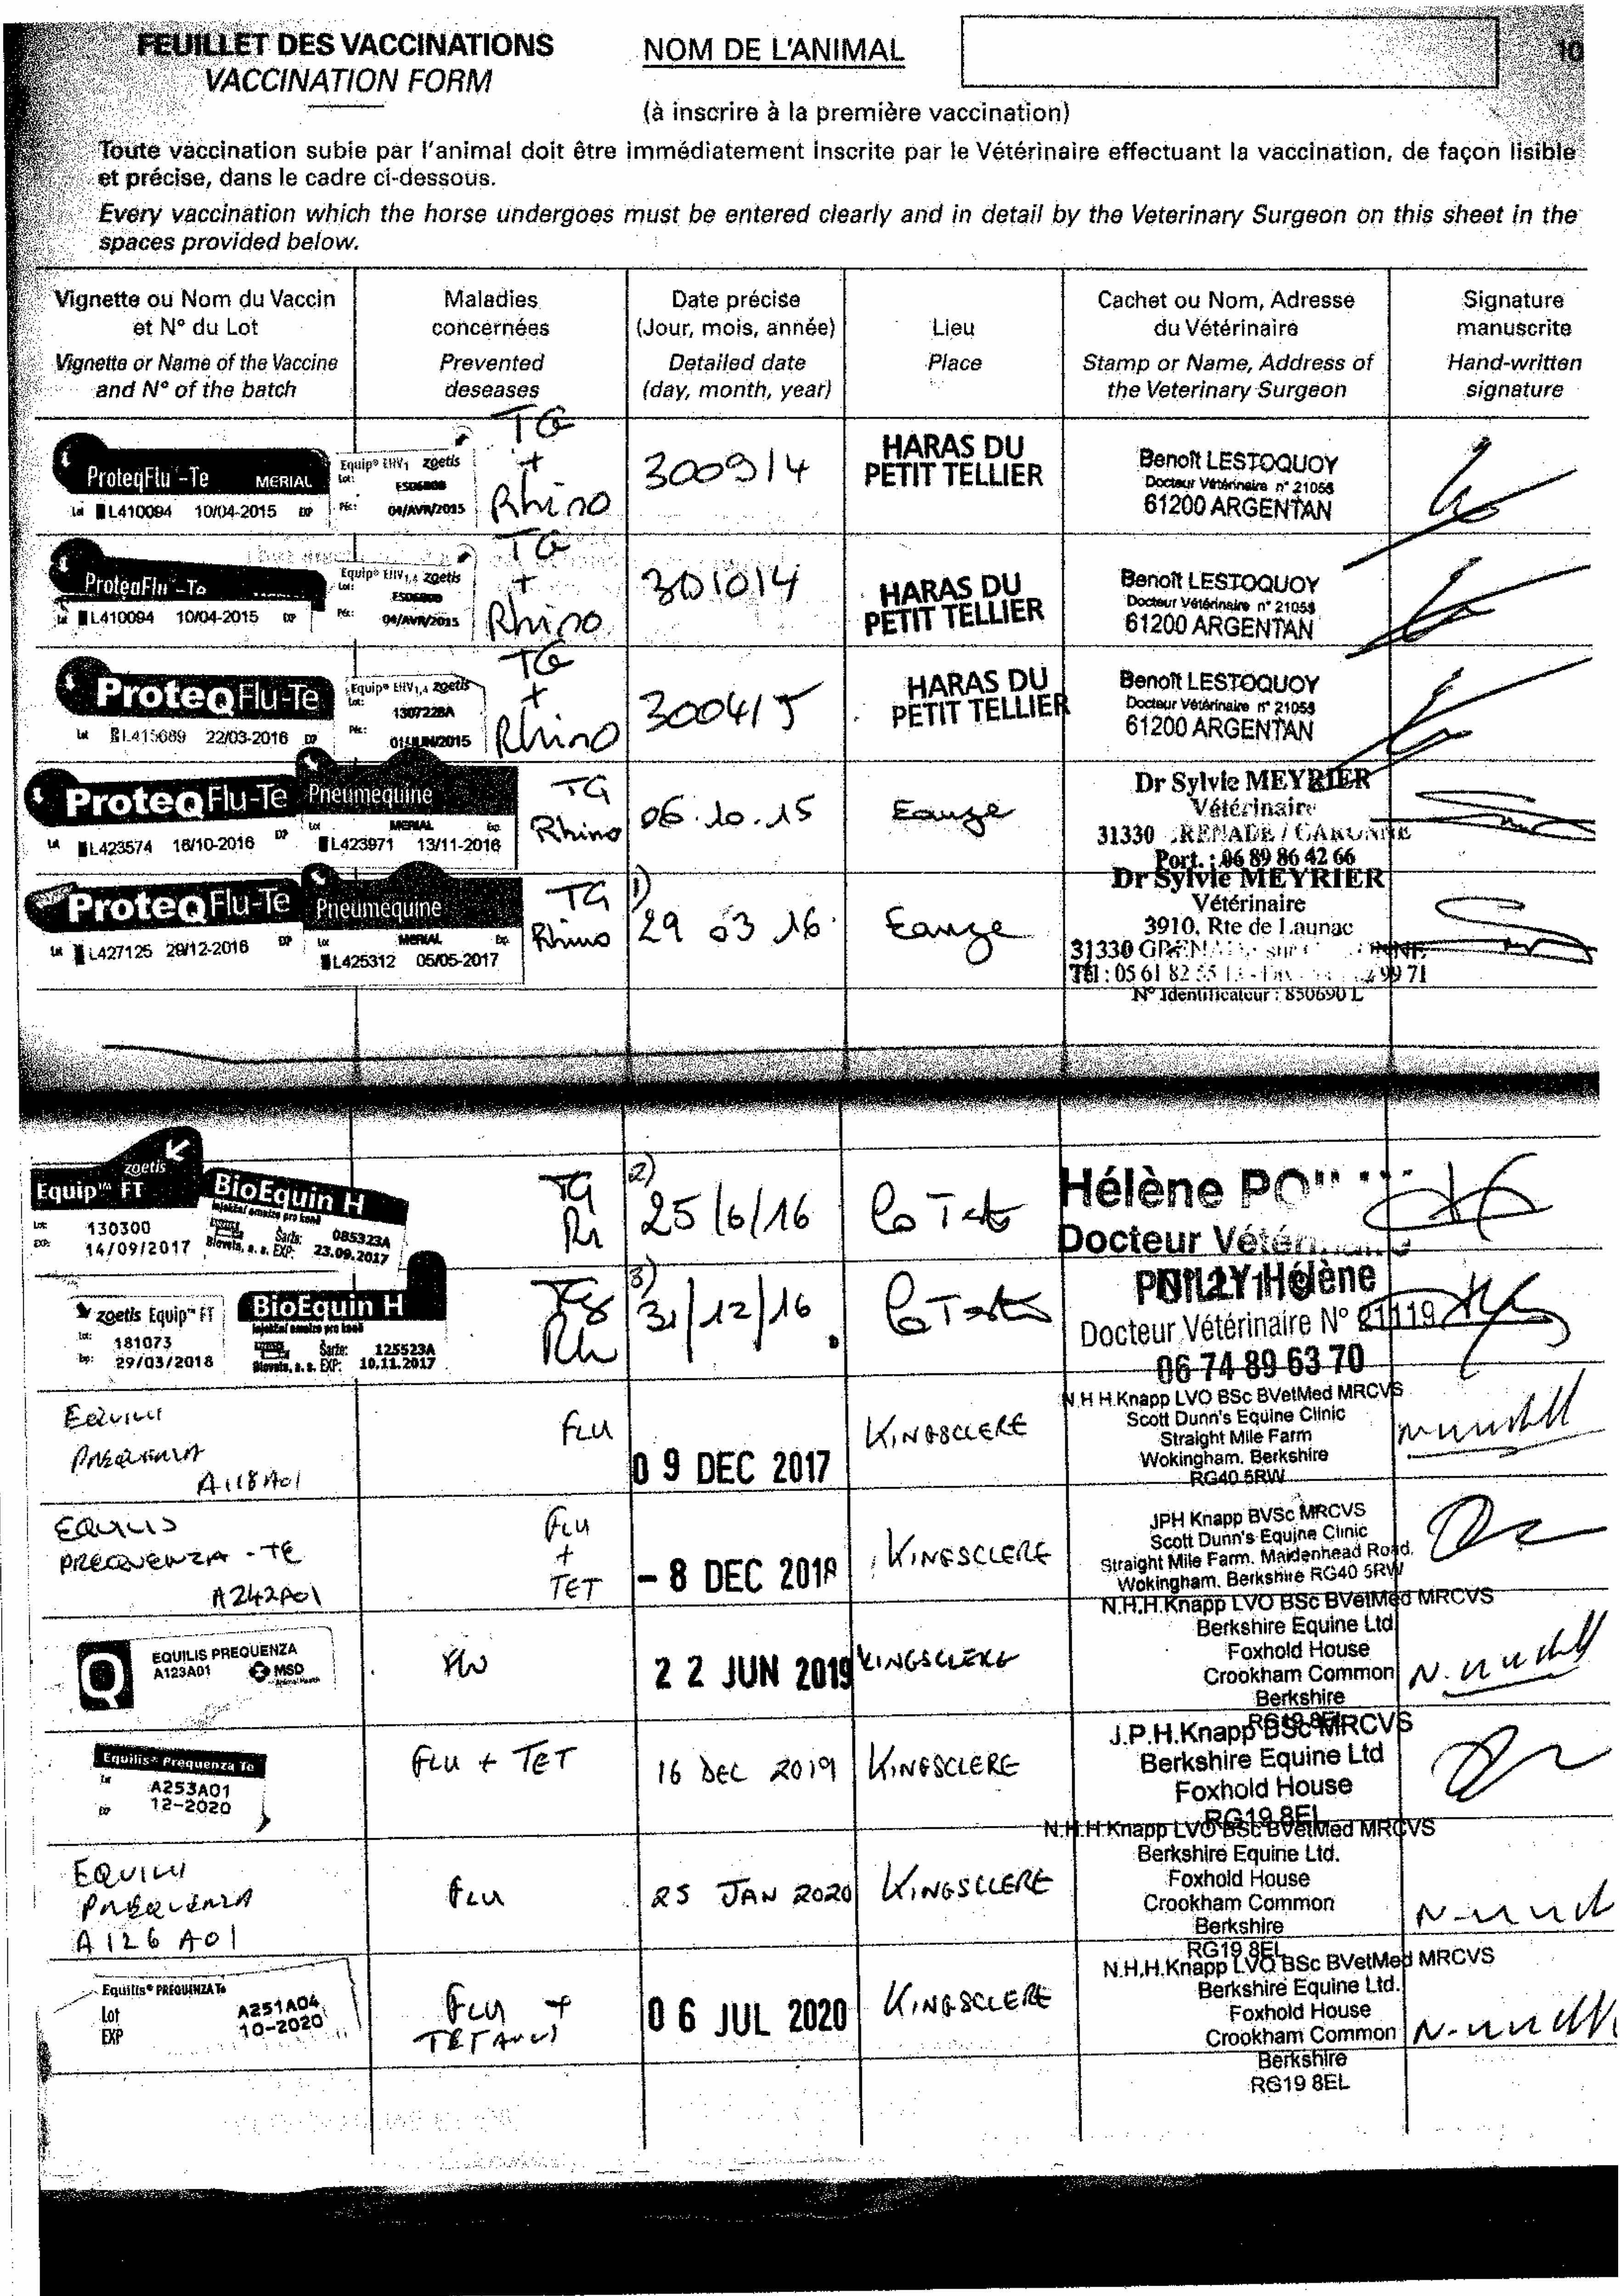 FEUILLET DES VACCINATIONS
VACCINATION FORM
NOM DE L'ANIMAL
10
(à inscrire à la première vaccination)
Toute vaccination subie par l'animal doit être immédiatement inscrite par le Vétérinaire effectuant la vaccination, de façon lisible
et précise, dans le cadre ci-dessous.
Every vaccination which the horse undergoes must be entered clearly and in detail by the Veterinary Surgeon on this sheet in the
spaces provided below.
Vignette ou Nom du Vaccin
et N° du Lot
Vignette or Name of the Vaccine
and N° of the batch
Maladies
concernées
Prevented
deseases
Date précise
(Jour, mois, année)
Detailed date
(day, month, year)
Lieu
Place
Cachet ou Nom, Adresse
du Vétérinaire
Stamp or Name, Address of
the Veterinary Surgeon
Signature
manuscrite
Hand-written
signature
ProteqFlu-Te MERIAL
Lot L410094 10/04-2015 EXP
Equip® EHV1 zoetis
Lot:
Pér.: 04/AVR/2015
TG
+
Rhino
300914
HARAS DU
PETIT TELLIER
Benoît LESTOQUOY
Docteur Vétérinaire n° 21058
61200 ARGENTAN
ProteqFlu-Te
L410094 10/04-2015 EXP
Equip® EHV1,4 zoetis
Lot:
Pér.: 04/AVR/2015
TG
+
Rhino
301014
HARAS DU
PETIT TELLIER
Benoît LESTOQUOY
Docteur Vétérinaire n° 21058
61200 ARGENTAN
ProteqFlu-Te
Lot L415689 22/03-2016 EXP
Equip® EHV1,4 zoetis
Lot: 1307228A
Pér.: 01/JUN/2015
TG
+
Rhino
300415
HARAS DU
PETIT TELLIER
Benoît LESTOQUOY
Docteur Vétérinaire n° 21058
61200 ARGENTAN
ProteqFlu-Te
Lot L423574 16/10-2016 EXP
Pneumequine
Lot MERIAL Exp
L423971 13/11-2016
TG
Rhino
06.10.15
Eauze
Dr Sylvie MEYRIER
Vétérinaire
31330 GRENADE / GARONNE
Port. : 06 89 86 42 66
ProteqFlu-Te
Lot L427125 29/12-2016 EXP
Pneumequine
Lot MERIAL Exp
L425312 05/05-2017
TG
Rhino
1)
29 03 16
Eauze
Dr Sylvie MEYRIER
Vétérinaire
3910, Rte de Launac
31330
Tél : 05 61 82 55 99 71
N° Identificateur : 850690 L
zoetis
Equip™ FT
Lot: 130300
EXP: 14/09/2017
BioEquin H
injekční emulze pro koně
Šarže: 085323A
Bioveta, a. s. EXP: 23.09.2017
TG
Rh
2)
25/6/16
Hélène
Docteur
zoetis Equip™ FT
Lot: 181073
Exp: 29/03/2018
BioEquin H
injekční emulze pro koně
Šarže: 125523A
Bioveta, a. s. EXP: 10.11.2017
TG
Rh
3)
31/12/16
POILLY Hélène
Docteur Vétérinaire N° 21119
06 74 89 63 70
EQUILIS
PREQUENZA
A118A01
FLU
09 DEC 2017
KINGSCLERE
N.H.H.Knapp LVO BSc BVetMed MRCVS
Scott Dunn's Equine Clinic
Straight Mile Farm
Wokingham. Berkshire
RG40 5RW
EQUILIS
PREQUENZA - TE
A242A01
FLU
+
TET
- 8 DEC 2018
KINGSCLERE
JPH Knapp BVSc MRCVS
Scott Dunn's Equine Clinic
Straight Mile Farm. Maidenhead Road.
Wokingham. Berkshire RG40 5RW
EQUILIS PREQUENZA
A123A01 MSD
Animal Health
FLU
22 JUN 2019
KINGSCLERE
N.H.H.Knapp LVO BSc BVetMed MRCVS
Berkshire Equine Ltd
Foxhold House
Crookham Common
Berkshire
RG19 8EL
Equilis® Prequenza Te
Lot A253A01
EXP 12-2020
FLU + TET
16 DEC 2019
KINGSCLERE
J.P.H.Knapp BSc MRCVS
Berkshire Equine Ltd
Foxhold House
RG19 8EL
EQUILIS
PREQUENZA
A126A01
FLU
25 JAN 2020
KINGSCLERE
N.H.H.Knapp LVO BSc BVetMed MRCVS
Berkshire Equine Ltd.
Foxhold House
Crookham Common
Berkshire
RG19 8EL
Equilis® PREQUENZA Te
Lot A251A04
EXP 10-2020
FLU +
TETANUS
06 JUL 2020
KINGSCLERE
N.H.H.Knapp LVO BSc BVetMed MRCVS
Berkshire Equine Ltd.
Foxhold House
Crookham Common
Berkshire
RG19 8EL